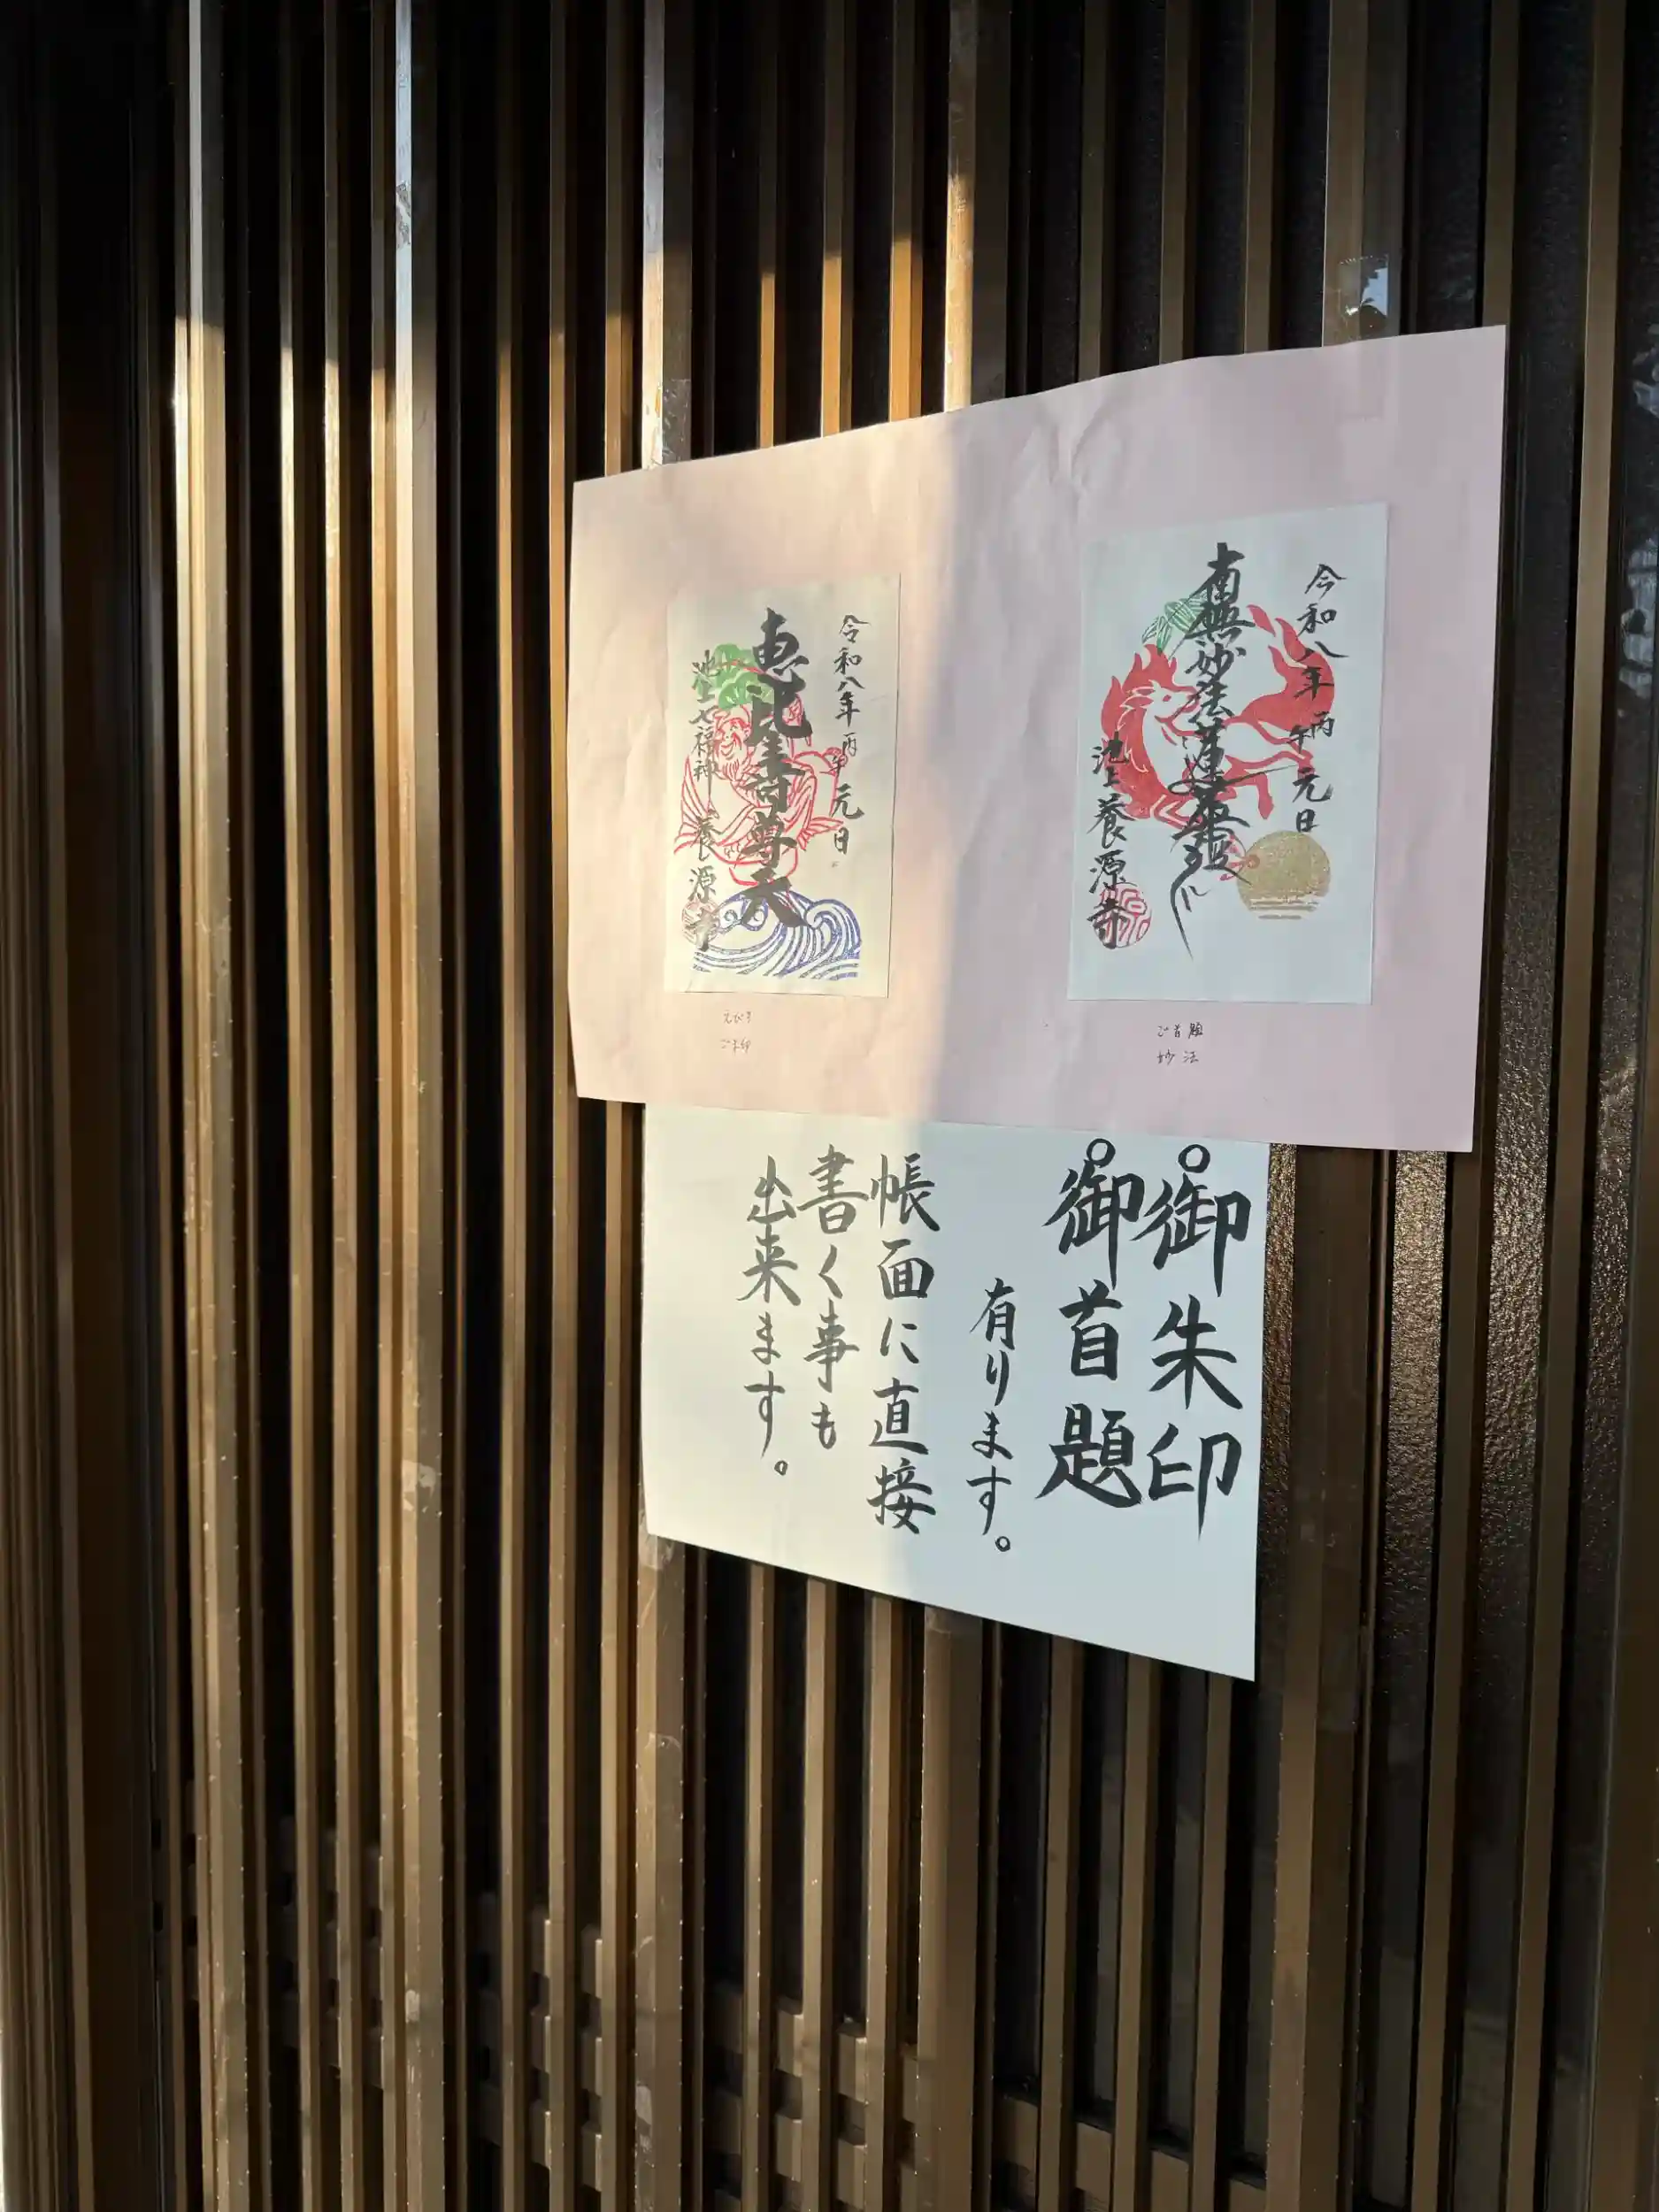 令和八年丙午元日
南無妙法蓮華経
池上養源寺
ご首題
妙法
令和八年丙午元日
恵比寿尊天
池上七福神 養源寺
えびす
ご朱印
○御朱印
○御首題
有ります。
帳面に直接
書く事も
出来ます。